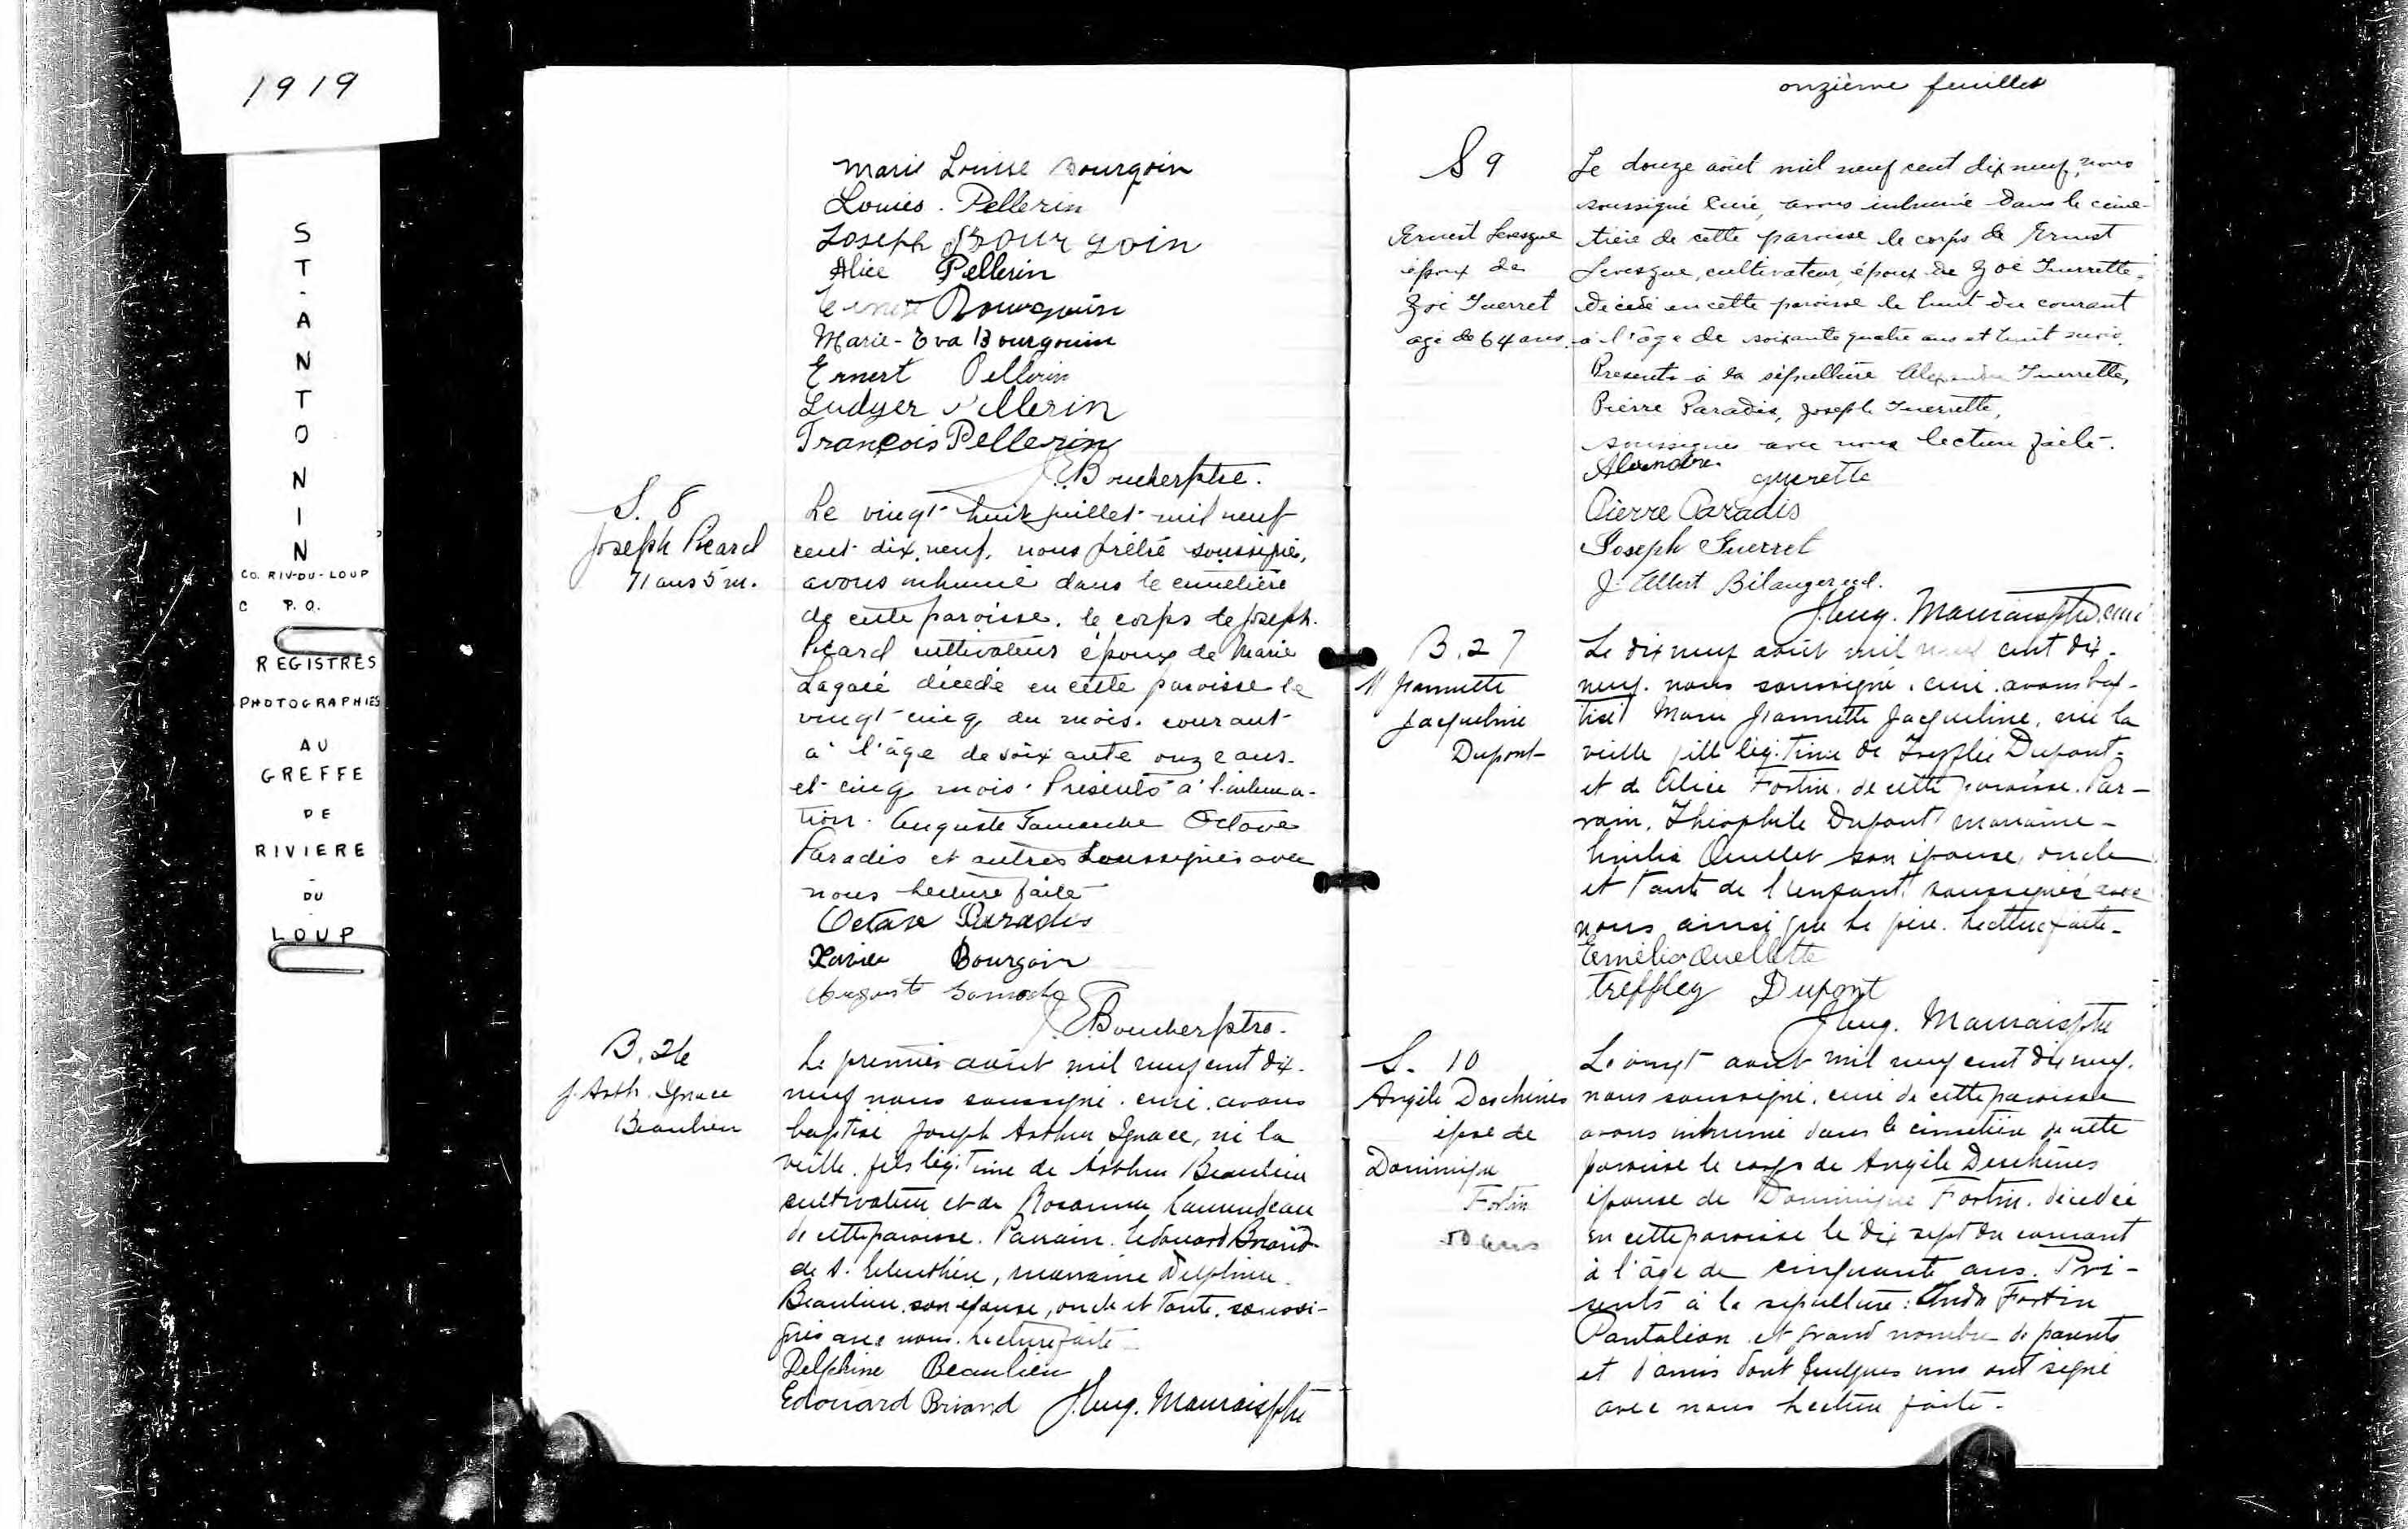 1919
ST-ANTONIN
CO. RIV-DU-LOUP
C P.Q.
REGISTRES
PHOTOGRAPHIES
AU
GREFFE
DE
RIVIERE
-
DU
LOUP
Marie Louise Bourgoin
Louies. Pellerin
Joseph Bourgoin
Alice Pellerin
Ernest Bourgouin
Marie-Eva Bourgouin
Ernest Pellerin
Ludger Pellerin
François Pellerin
J.E. Boucher ptre.
S. 8
Joseph Picard
71 ans 5 m.
Le vingt-huit juillet mil neuf
cent dix neuf, nous prêtre soussigné,
avons inhumé dans le cimetière
de cette paroisse, le corps de Joseph
Picard cultivateur époux de Marie
Lagacé décédé en cette paroisse le
vingt-cinq du mois courant
à l'âge de soixante onze ans
et cinq mois. Présents à l'inhuma-
tion. Auguste Octave
Paradis et autres soussignés avec
nous lecture faite
Octave Paradis
Xavier Bourgoin
August
J.E. Boucher ptre.
B. 26
J. Arth. Ignace
Beaulieu
Le premier août mil neuf cent dix-
neuf nous soussigné, curé, avons
baptisé Joseph Arthur Ignace, né la
veille, fils légitime de Arthur Beaulieu
cultivateur et de Rosanna
de cette paroisse. Parrain. Edouard Briand
de S. Eleuthère, marraine Delphine
Beaulieu, son épouse, oncle et tante, soussi-
gnés avec nous. Lecture faite
Delphine Beaulieu
Edouard Briand J. Eug. Maurais ptre
onzième feuillet
S 9
Ernest Levesque
époux de
Zoé Guerret
agé de 64 ans
Le douze août mil neuf cent dix neuf, nous
soussigné curé, avons inhumé dans le cime-
tière de cette paroisse le corps de Ernest
Levesque, cultivateur, époux de Zoé Guerrette,
décédé en cette paroisse le huit du courant
à l'âge de soixante quatre ans et huit mois.
Présents à la sépulture Alexandre Guerrette,
Pierre Paradis, Joseph Guerrette,
soussignés avec nous lecture faite.
Alexandre guerette
Pierre Paradis
Joseph Guerret
J. Albert Bélanger
J. Eug. Maurais ptre curé
B. 27
M Jeannette
Jacqueline
Dupont
Le dix neuf août mil neuf cent dix-
neuf, nous soussigné, curé, avons bap-
tisé Marie Jeannette Jacqueline, née la
veille fille légitime de Dupont
et de Alice Fortin, de cette paroisse. Par-
rain, Théophile Dupont marraine
Emilia Ouellet son épouse, oncle
et tante de l'enfant soussignés avec
nous ainsi que le père. Lecture faite.
Emélia Ouellette
treffley Dupont
J. Eug. Maurais ptre
S. 10
Angèle Deschènes
épse de
Dominique
Fortin
50 ans
Le vingt août mil neuf cent dix neuf,
nous soussigné, curé de cette paroisse
avons inhumé dans le cimetière de cette
paroisse le corps de Angèle Deschènes
épouse de Dominique Fortin, décédée
en cette paroisse le dix sept du courant
à l'âge de cinquante ans. Pré-
sents à la sépulture: Fortin
Pantaléon et grand nombre de parents
et d'amis dont quelques uns ont signé
avec nous lecture faite.